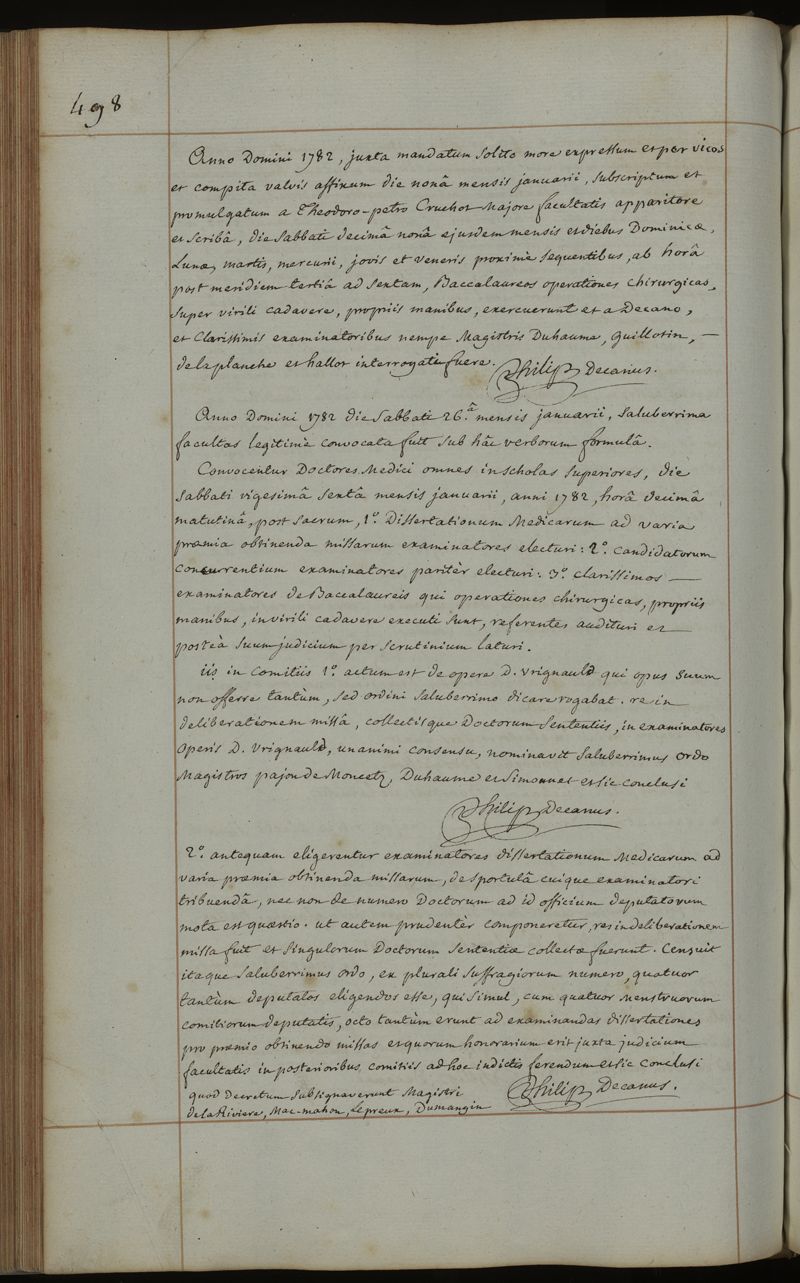 498
Anno Domini 1782, juxta mandatum solito more expressum et per vicos
et compita valvis affixum die nonâ mensis januarii, subscriptum et
promulgatum a Theodoro-petro Cruchot Majore facultatis apparitore
et scribâ, die Sabbati decimâ nonâ ejusdem mensis et diebus Dominicæ,
Lunæ, martis, mercurii, jovis et veneris proximè sequentibus, ab horâ
post meridiem tertiâ ad sextam, Baccalaureos operationes chirurgicas,
super virili cadavere, propriis manibus, exercuerunt et a Decano,
et Clarissimis examinatoribus nempe Magistris Duhaume, Guillotin, —
delaplanche et hallot interrogati fuere. Philip Decanus.
Anno Domini 1782 die Sabbati 26.â mensis januarii, Saluberrima
facultas legitimè convocata fuit sub hâc verborum formulâ.
Convocentur Doctores Medici omnes in scholas superiores, die
Sabbati vigesimâ sextâ mensis januarii, anni 1782, horâ decimâ
matutinâ, post sacrum, 1.º Dissertationum Medicarum ad varia
præmia obtinenda missarum examinatores electuri: 2.º candidatorum
concurrentium examinatores pariter electuri: 3.º clarissimos —
examinatores de Baccalaureis qui operationes chirurgicas, propriis
manibus, in virili cadavere executi sunt, referentes audituri et
posteà suum judicium per scrutinium laturi.
iis in comitiis 1.º actum est de opere D. Vrignauld qui opus suum
non offerre tantùm, sed ordini saluberrimo dicare rogabat. re in
deliberationem missâ, collectisque Doctorum Sententiis, in examinatores
operis D. Vrignauld, unanimi consensu, nominavit Saluberrimus ordo
Magistros pajon de Moncetz, Duhaume et Simonnet et sic conclusi
Philip Decanus.
2.º antequam eligerentur examinatores dissertationum Medicarum ad
varia præmia obtinenda missarum, de sportulâ cuique examinatori
tribuendâ, nec non de numero Doctorum ad id officium deputatorum
mota est quæstio. ut autem prudentèr componeretur, res in deliberationem
missa fuit et singulorum Doctorum Sententiæ collectæ fuerunt. Censuit
itaque Saluberrimus ordo, ex plurali suffragiorum numero, quatuor
tantùm deputatos eligendos esse, qui simul, cum quatuor menstruorum
comitiorum deputatis, octo tantùm erunt ad examinandas dissertationes
pro præmio obtinendo missas et quorum honorarium erit juxta judicium
facultatis in posterioribus comitiis ad hoc indictis ferendum et sic conclusi
quod decretum subsignaverunt Magistri Philip Decanus.
de la Riviere, Mac-mahon, Lepreux, Dumangin